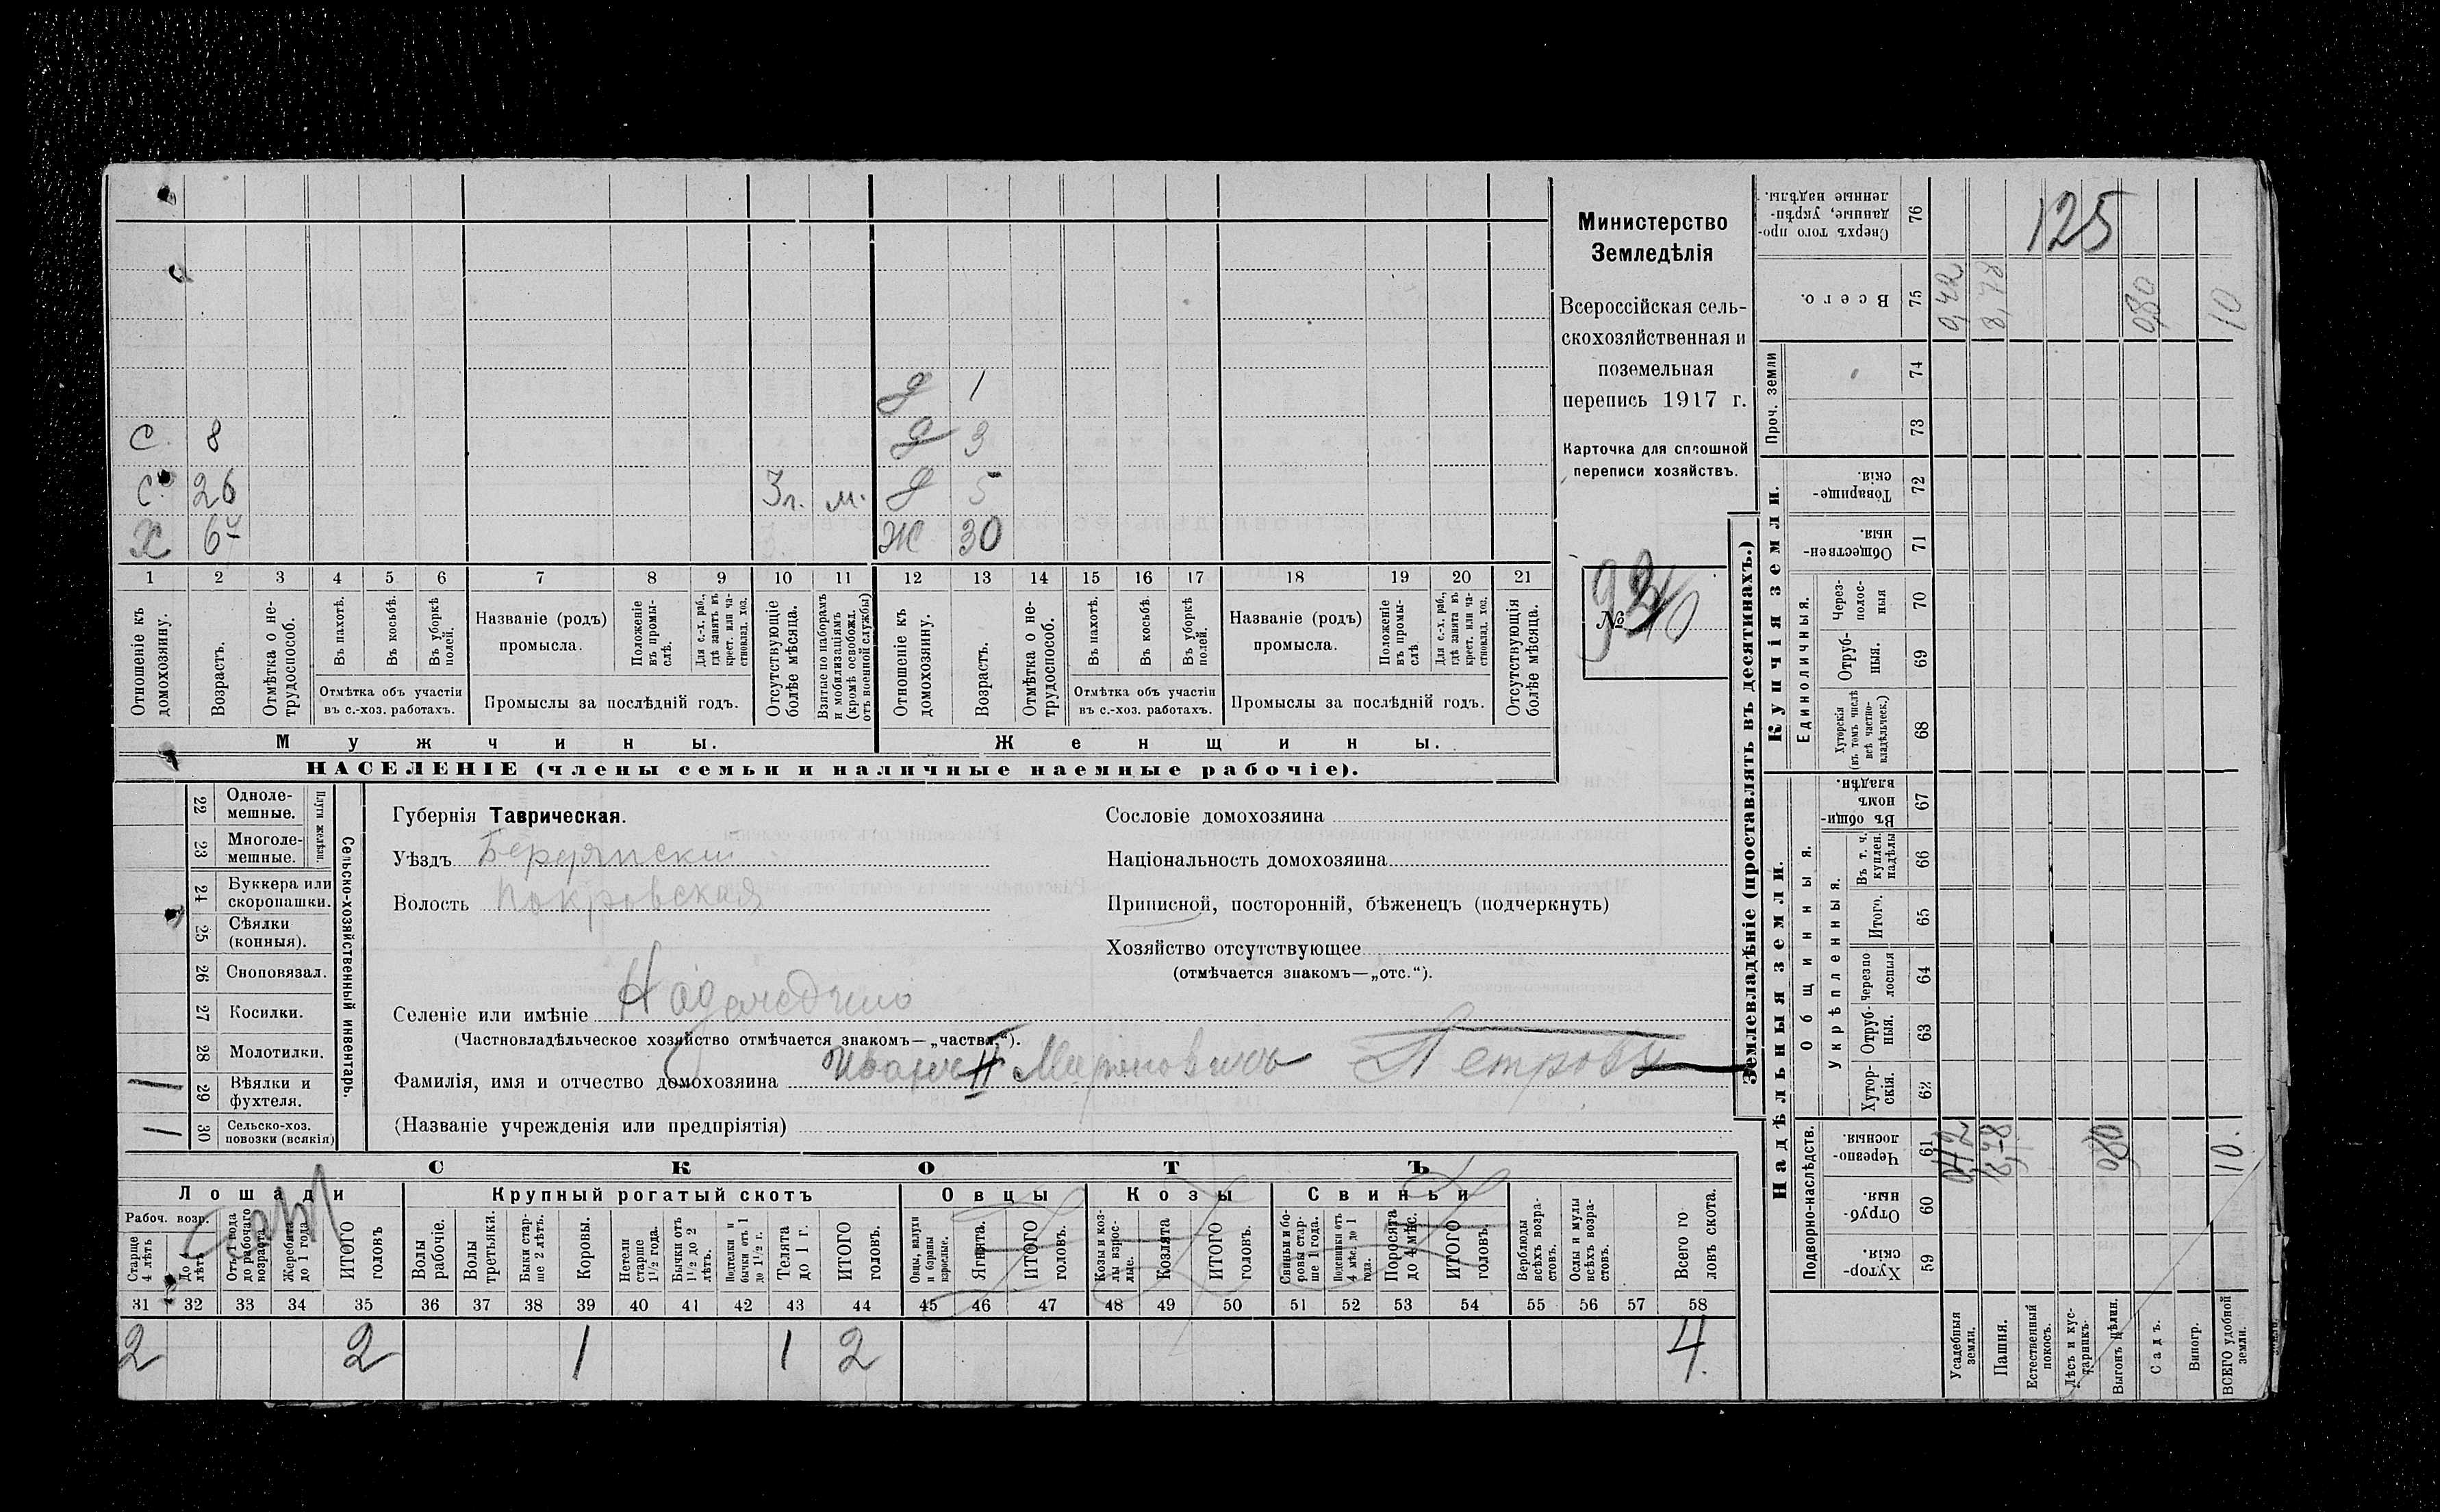 Министерство
Земледѣлія
Всероссійская сель-
скохозяйственная и
поземельная
перепись 1917 г.
Карточка для сплошной
переписи хозяйствъ.
№
д 1
С. 8 д 3
С. 26 3г. м. д 5
Х Ж 30
1 2 3 4 5 6 7 8 9 10 11 12 13 14 15 16 17 18 19 20 21
Отношеніе къ домохозяину.
Возрастъ.
Отмѣтка о не-трудоспособ.
Въ пахотѣ.
Въ косьбѣ.
Въ уборкѣ полей.
Отмѣтка объ участіи
въ с.-хоз. работахъ.
Названіе (родъ)
промысла.
Положеніе въ промы-слѣ.
Для с.-х. раб., гдѣ занятъ въ крест. или ча-стновлад. хоз.
Промыслы за послѣдній годъ.
Отсутствующіе болѣе мѣсяца.
Взятые по наборамъ и мобилизаціямъ (кромѣ освобожд. отъ военной службы)
Отношеніе къ домохозяину.
Возрастъ.
Отмѣтка о не-трудоспособ.
Въ пахотѣ.
Въ косьбѣ.
Въ уборкѣ полей.
Отмѣтка объ участіи
въ с.-хоз. работахъ.
Названіе (родъ)
промысла.
Положеніе въ промы-слѣ
Для с.-х. раб., гдѣ занята въ крест. или ча-стновлад. хоз.
Промыслы за послѣдній годъ.
Отсутствующія болѣе мѣсяца.
Мужчины. Женщины.
НАСЕЛЕНІЕ (члены семьи и наличные наемные рабочіе).
Сельско-хозяйственный инвентарь.
Плуги желѣзн.
22 Одноле-мешные.
23 Многоле-мешные.
24 Буккера или скоропашки.
25 Сѣялки (конныя).
26 Сноповязал.
27 Косилки.
28 Молотилки.
29 Вѣялки и фухтеля. 1
30 Сельско-хоз. повозки (всякія) 1
Губернія Таврическая.
Уѣздъ Бердянскій
Волость Покровская
Селеніе или имѣніе
(Частновладѣльческое хозяйство отмѣчается знакомъ—„частвл.“).
Фамилія, имя и отчество домохозяина Иванъ II Мироновичъ Петровъ
(Названіе учрежденія или предпріятія)
Сословіе домохозяина
Національность домохозяина
Приписной, посторонній, бѣженецъ (подчеркнуть)
Хозяйство отсутствующее
(отмѣчается знакомъ—„отс.“).
СКОТЪ
Лошади Крупный рогатый скотъ Овцы Козы Свиньи
Рабоч. возр.
Старше 4 лѣтъ
До 4 лѣтъ
Отъ 1 года до рабочаго возраста
Жеребята до 1 года
ИТОГО головъ
Волы рабочіе.
Волы третьяки.
Быки стар-ше 2 лѣтъ.
Коровы.
Нетели старше 1½ года.
Бычки отъ 1½ до 2 лѣтъ.
Подтелки и бычки отъ 1 до 1½ г.
Телята до 1 г.
ИТОГО головъ.
Овцы, валухи и бараны взрослые.
Ягнята.
ИТОГО головъ.
Козы и коз-лы взрос-лые.
Козлята
ИТОГО головъ.
Свиньи и бо-ровы стар-ше 1 года.
Подсвинки отъ 4 мѣс. до 1 года.
Поросята до 4 мѣс.
ИТОГО головъ.
Верблюды всѣхъ возра-стовъ.
Ослы и мулы всѣхъ возра-стовъ.
Всего го-ловъ скота.
31 32 33 34 35 36 37 38 39 40 41 42 43 44 45 46 47 48 49 50 51 52 53 54 55 56 57 58
2 2 1 1 2 4.
Землевладѣніе (проставлять въ десятинахъ.)
Надѣльныя земли.
Подворно-наслѣдств.
Хутор-скія. 59
Отруб-ныя. 60
Черезпо-лосныя. 61
Общинныя.
Укрѣпленныя.
Хутор-скія. 62
Отруб-ныя. 63
Черезпо-лосныя 64
Итого. 65
Въ т. ч. куплен. надѣлы 66
Въ общин-номъ владѣн. 67
Купчія земли.
Единоличныя.
Хуторскія (въ томъ числѣ всѣ частно-владѣльческ.) 68
Отруб-ныя. 69
Черезполос-ныя 70
Обществен-ныя. 71
Товарище-скія. 72
Проч. земли
73
74
Всего. 75
Сверхъ того про-данные, укрѣп-ленные надѣлы. 76
125
0,42 8,78 0,80 10
0,42 8,78 0,80 10.
Усадебныя земли.
Пашня.
Естественный покосъ.
Лѣсъ и кус-тарникъ.
Выгонъ цѣлин.
Садъ.
Виногр.
ВСЕГО удобной земли.